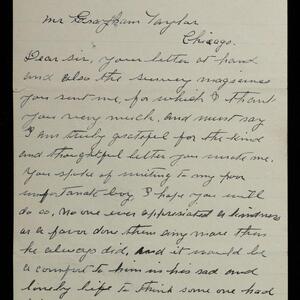 Mr Graham Taylor
Chicago.
Dear sir, your letter at hand
and also the survey magazines
you sent me, for which I thank
you very much, and must say
I am truly grateful for the kind
and thoughtful letter you wrote me.
You spoke of writing to my poor
unfortunate boy, I hope you will
do so, no one ever appreciated a kindness
or a favor done them any more than
he always did, and it would be
a comfort to him in his sad and
lonely life to think some one had